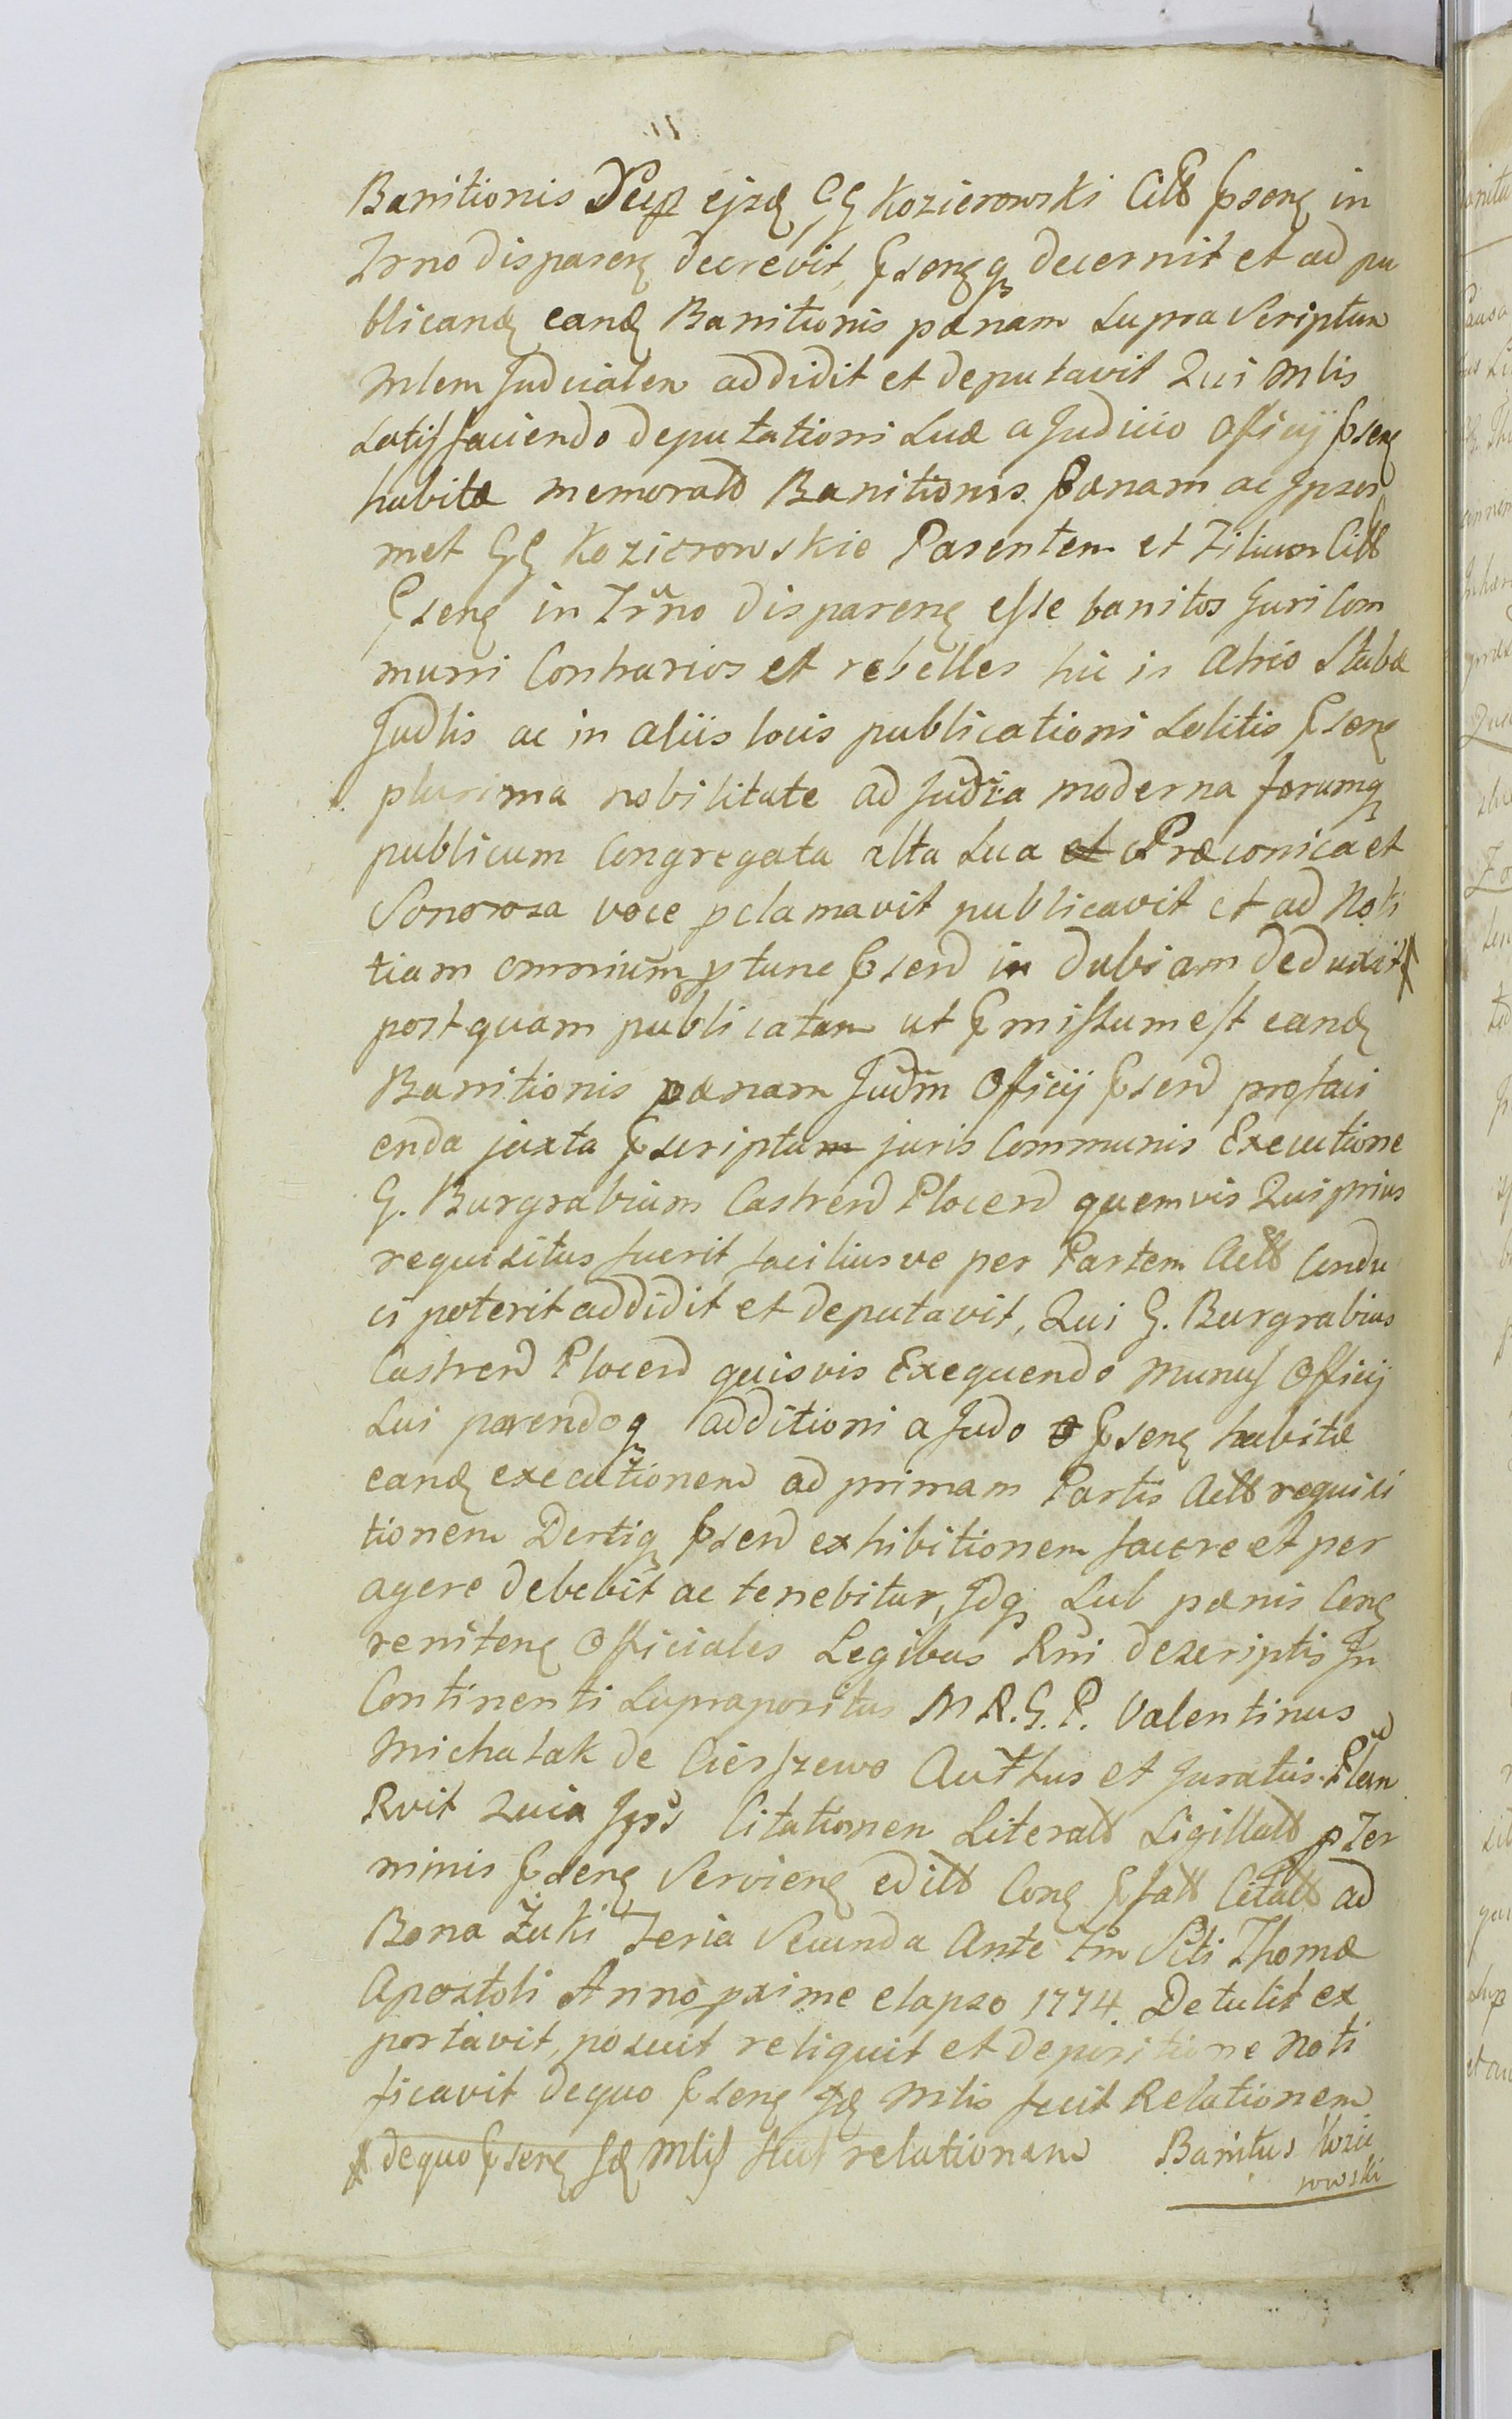 Banitionis sup ejsd GG Kozierowski Citt pseng in
Trno disparen decrevit, psengq decernit et ad pu
blicand eand Banitionis pænam supra scriptam
Mlem Judicialem addidit et deputavit Qui Mlis
satisfaciendo deputationi suæ a Judicio Officij pseng
habitæ memoratt Banitionis pænam ac Ipsos
met GG Kozierowskie Parentem et Filium Citt
pseng in Trno dispareng esse banitos Juri Com
muni Contrarios et rebelles hic in Atrio Stubæ
Judlis ac in aliis locis publicationi solitis pseng
plurima nobilitate ad Judia moderna forumq
publicum Congregata alta sua et Præconica et
Sonorosa voce pclamavit publicavit et ad Noti
tiam omnium p tunc psend in dubiam deduxit
post quam publicatam ut pmissum est eand
Banitionis pænam Judm Officij psend pro faci
enda juxta pscriptum juris Communis Executione
G. Burgrabium Castrens Plocens quemvis Qui prius
requisitus fuerit faciliusve per Partem Actt Condu
ci poterit addidit et deputavit, Qui G. Burgrabius
Castrens Plocens quisvis Exequendo munus Officij
sui parendoq additioni a Judo pseng habitæ
eand executionem ad primam Partis Actt requisi
tionem Dertiq psend exhibitionem facere et per
agere debebit ac tenebitur, Idq sub pænis Cong
reniteng Officiales Legibus Rni descriptis In
Continenti suprapositus M R. G. P. Valentinus
Michalak de Cierszewo Autthus et Juratus Plan
Rvit Quia Ipse Citationem Literatt Sigillatt p Ter
minis pseng Servieng editt Cong pfatt Citatt ad
Bona Żuki Feria Secunda Ante Fm Scti Thomæ
Apostoli Anno pxime elapso 1774 Detulit ex
portavit, posuit reliquit et depositione noti
ficavit de quo pseng sd Mlis fecit Relationem
de quo pseng sd Mlis fecit relationem Banitus Kozie
rowski